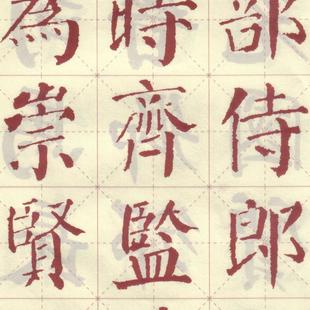 部侍郎
時齊監
為崇賢